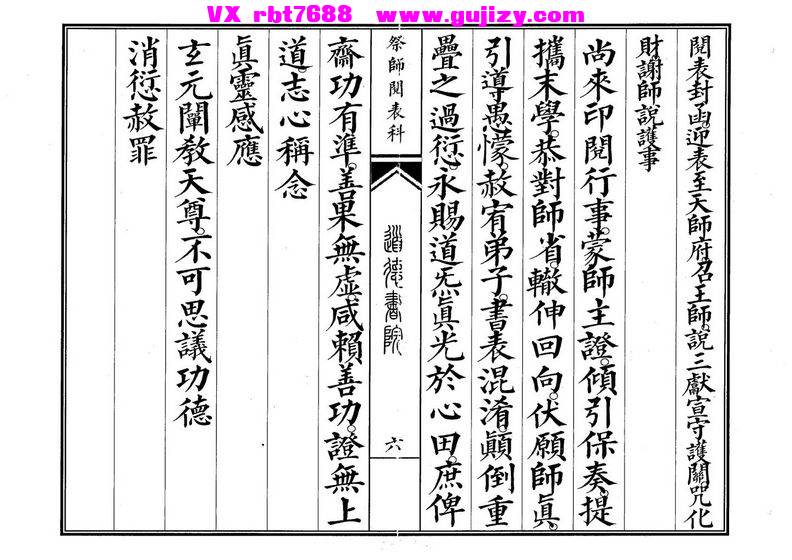 VX rbt7688 www.gujizy.com
閱表封函迎表至天師府召王師說三獻宣守護關咒化
財謝師說護事
尚來印閱行事蒙師主證傾引保奏提
攜末學恭對師省轍伸回向伏願師真
引導愚懞赦宥弟子書表混淆顛倒重
疊之過愆永賜道炁真光於心田庶俾
祭師閱表科
道德書院
六
齋功有準善果無虛咸賴善功證無上
道志心稱念
真靈感應
玄元闡教天尊不可思議功德
消愆赦罪